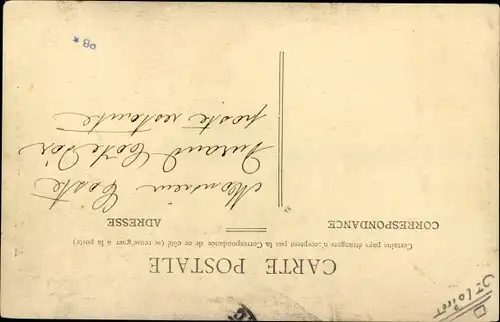 CARTE POSTALE
Certains pays étrangers n'acceptent pas la Correspondance de ce côté (se renseigner à la poste)
CORRESPONDANCE
ADRESSE
Monsieur Coste
Durand Cote d'or
poste restante
DB*